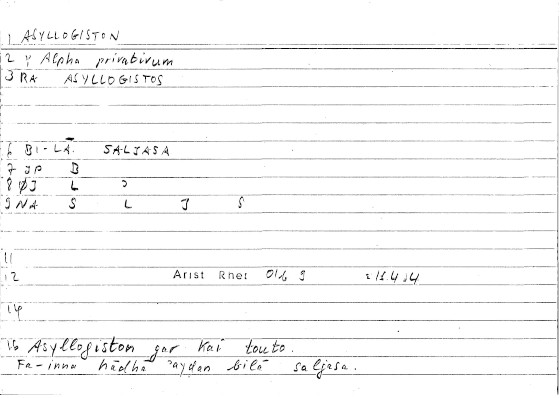 1 ASYLLOGISTON
2 γ Alpha privativum
3 RA ASYLLOGISTOS
6 BI-LĀ SALJASA
7 JP B
8 ØJ L
9 NA S L J S
11
12 Arist Rhet 01b 9
14
15 Asyllogiston gar kai touto.
Fa-inna hādhā ʾaydan bilā saljasa.